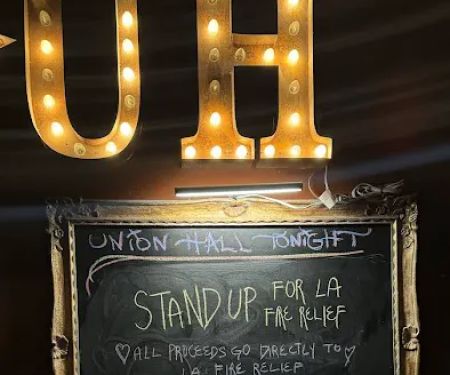 UH
UNION HALL TONIGHT
STAND UP FOR LA
FIRE RELIEF
♡ALL PROCEEDS GO DIRECTLY TO♡
LA FIRE RELIEF